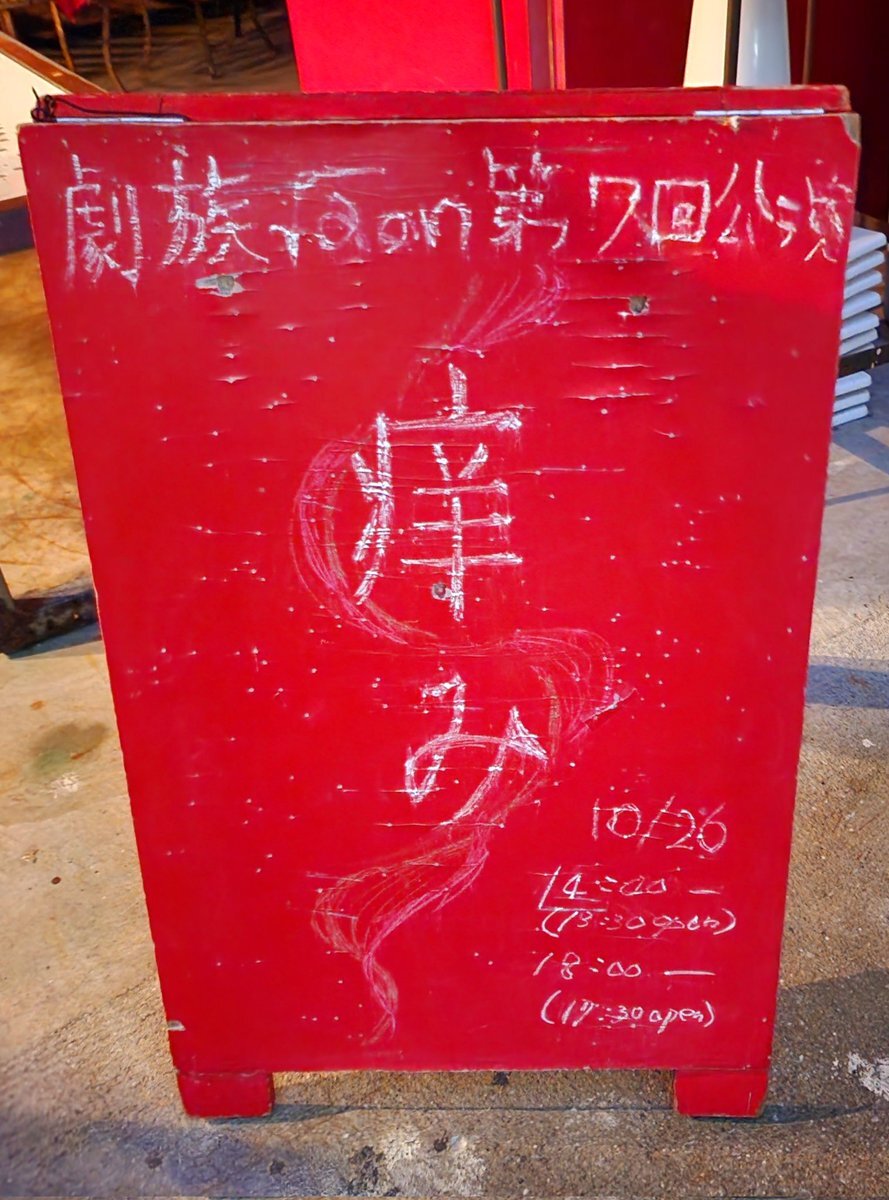 劇族 第7回公演
痒み
10/26
14:00 —
(13:30 open)
18:00 —
(17:30 open)